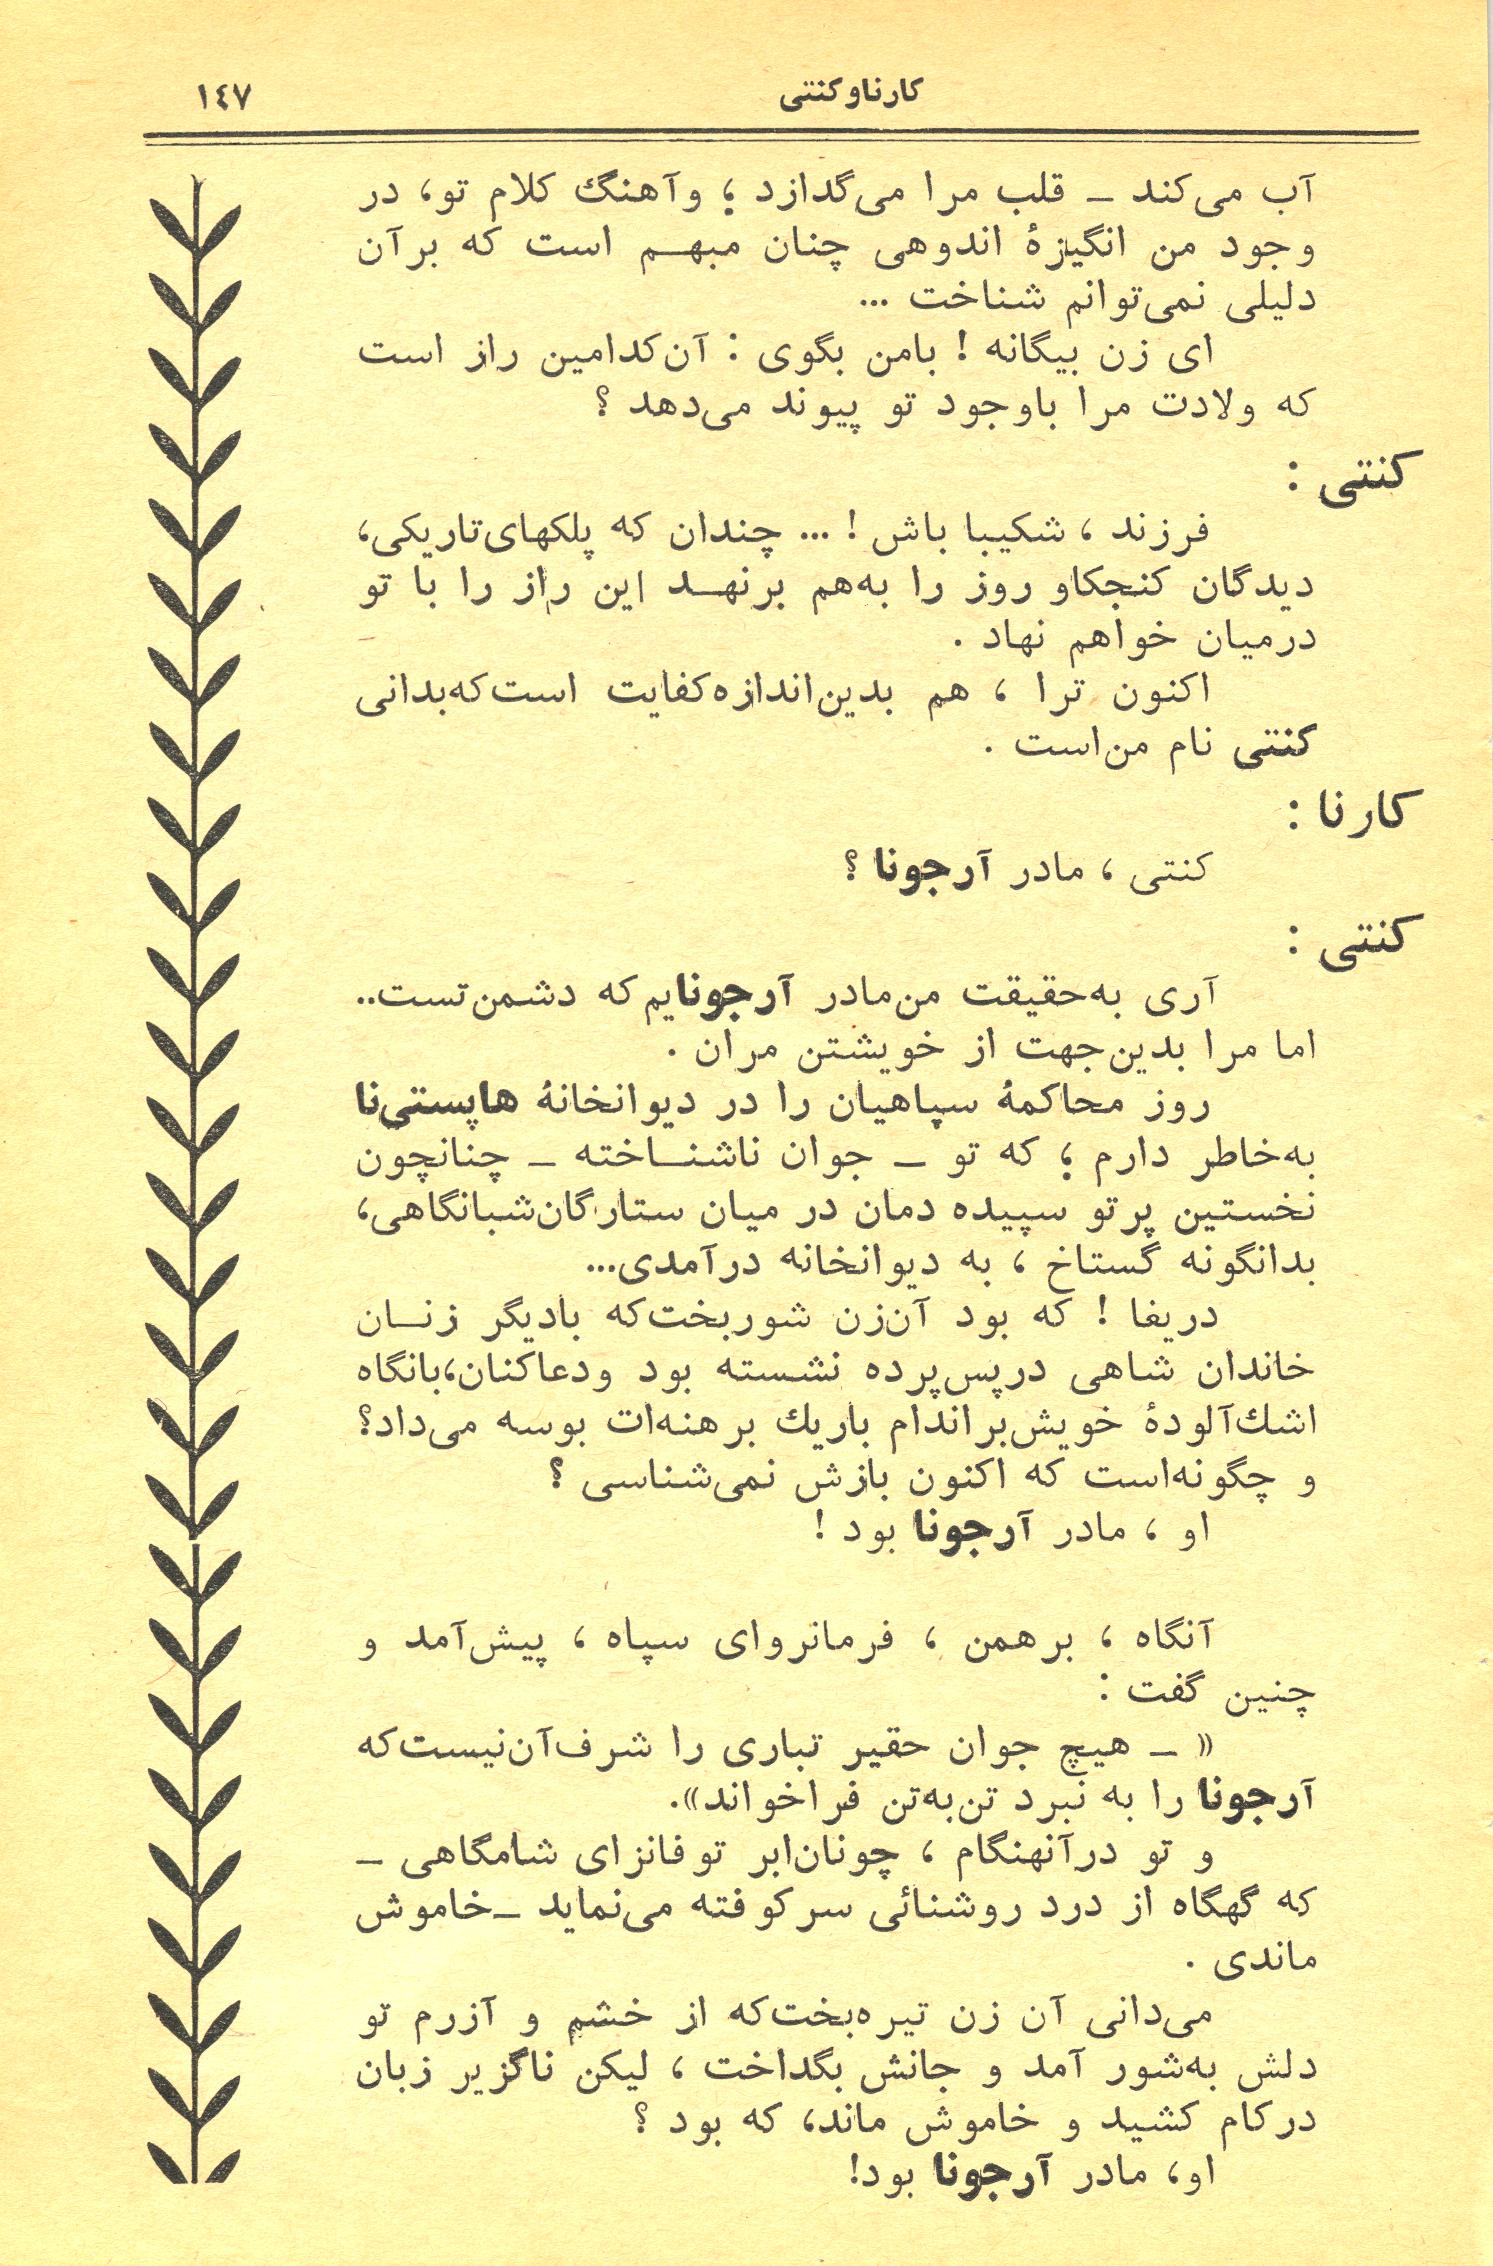 کارنا و کنتی
١٤٧
آب می‌کند ـ قلب مرا می‌گدازد ؛ وآهنگ کلام تو، در
وجود من انگیزهٔ اندوهی چنان مبهـم است که برآن
دلیلی نمی‌توانم شناخت ...
ای زن بیگانه ! بامن بگوی : آن‌کدامین راز است
که ولادت مرا باوجود تو پیوند می‌دهد ؟
کنتی :
فرزند ، شکیبا باش ! ... چندان که پلکهای‌تاریکی،
دیدگان کنجکاو روز را به‌هم برنهـد این راز را با تو
درمیان خواهم نهاد .
اکنون ترا ، هم بدین‌اندازه‌کفایت است‌که‌بدانی
کنتی نام من‌است .
کارنا :
کنتی ، مادر آرجونا ؟
کنتی :
آری به‌حقیقت من‌مادر آرجونایم‌که دشمن‌تست..
اما مرا بدین‌جهت از خویشتن مران .
روز محاکمهٔ سپاهیان را در دیوانخانهٔ هاپستی‌نا
به‌خاطر دارم ؛ که تو ـ جوان ناشنـاخته ـ چنانچون
نخستین پرتو سپیده دمان در میان ستارگان‌شبانگاهی،
بدانگونه گستاخ ، به دیوانخانه درآمدی...
دریغا ! که بود آن‌زن شوربخت‌که بادیگر زنـان
خاندان شاهی درپس‌پرده نشسته بود ودعاکنان،بانگاه
اشك‌آلودهٔ خویش‌براندام باریك برهنه‌ات بوسه می‌داد؟
و چگونه‌است که اکنون بازش نمی‌شناسی ؟
او ، مادر آرجونا بود !
آنگاه ، برهمن ، فرمانروای سپاه ، پیش‌آمد و
چنین گفت :
« ـ هیچ جوان حقیر تباری را شرف‌آن‌نیست‌که
آرجونا را به نبرد تن‌به‌تن فراخواند».
و تو درآنهنگام ، چونان‌ابر توفانزای شامگاهی ـ
که گهگاه از درد روشنائی سرکوفته می‌نماید ـ‌خاموش
ماندی .
می‌دانی آن زن تیره‌بخت‌که از خشم و آزرم تو
دلش به‌شور آمد و جانش بگداخت ، لیکن ناگزیر زبان
درکام کشید و خاموش ماند، که بود ؟
او، مادر آرجونا بود!